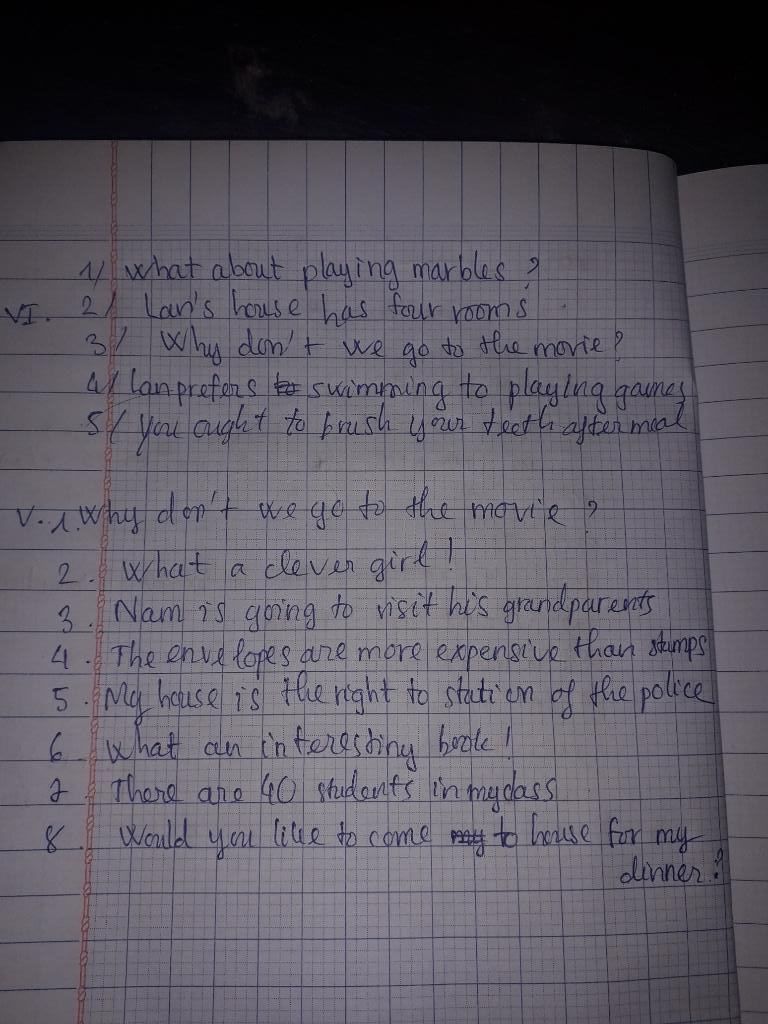 1/ What about playing marbles ?
VI. 2/ Lan's house has four rooms
3/ Why don't we go to the movie?
4/ Lan prefers to swimming to playing games
5/ you ought to brush your teeth after meal
V. 1. Why don't we go to the movie ?
2. What a clever girl !
3. Nam is going to visit his grandparents
4. The envelopes are more expensive than stamps
5. My house is the right to station of the police
6 What an interesting book !
7 There are 40 students in my class
8 Would you like to come my to house for my
dinner ?